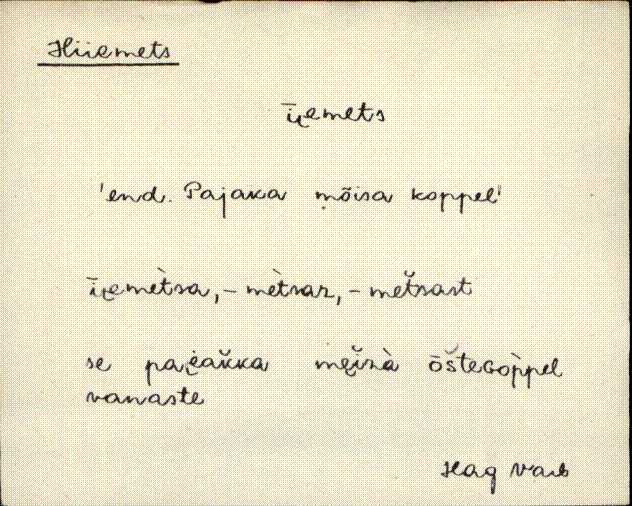 Hiiemets
īi̯emets
'end. Pajaka mõisa koppel'
īi̯emètsa, – mètsaz, – metšast
se pai̯akka mei̯zà ōšteGòppel
vanaste
Hag